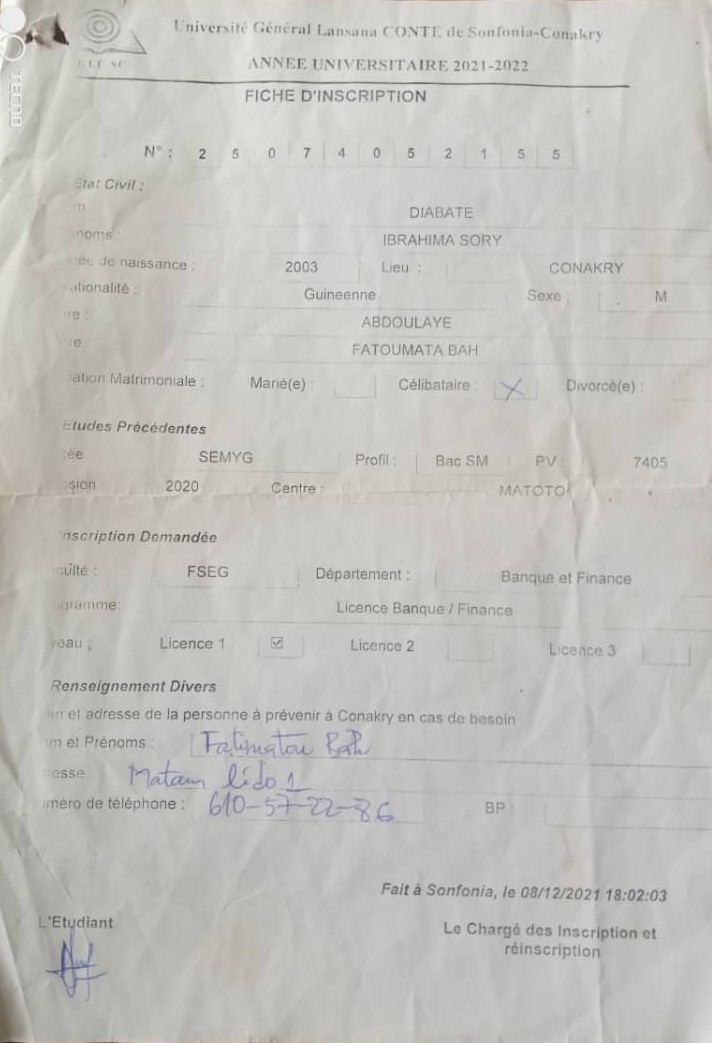 Université Général Lansana CONTE de Sonfonia-Conakry
ANNEE UNIVERSITAIRE 2021-2022
FICHE D'INSCRIPTION
N° : 2 5 0 7 4 0 5 2 1 5 5
Etat Civil :
m DIABATE
noms IBRAHIMA SORY
de naissance : 2003 Lieu : CONAKRY
ationalité : Guineenne Sexe : M
re : ABDOULAYE
re FATOUMATA BAH
ation Matrimoniale : Marié(e) : Célibataire : X Divorcé(e) :
Etudes Précédentes
cée SEMYG Profil : Bac SM PV : 7405
sion : 2020 Centre : MATOTO
nscription Demandée
culté : FSEG Département : Banque et Finance
gramme: Licence Banque / Finance
veau : Licence 1 ☑ Licence 2 Licence 3
Renseignement Divers
m et adresse de la personne à prévenir à Conakry en cas de besoin
m et Prénoms : Fatimatou Bah
esse Matam lido 1
uméro de téléphone : 610-57-22-86 BP :
Fait à Sonfonia, le 08/12/2021 18:02:03
L'Etudiant
Le Chargé des Inscription et
réinscription